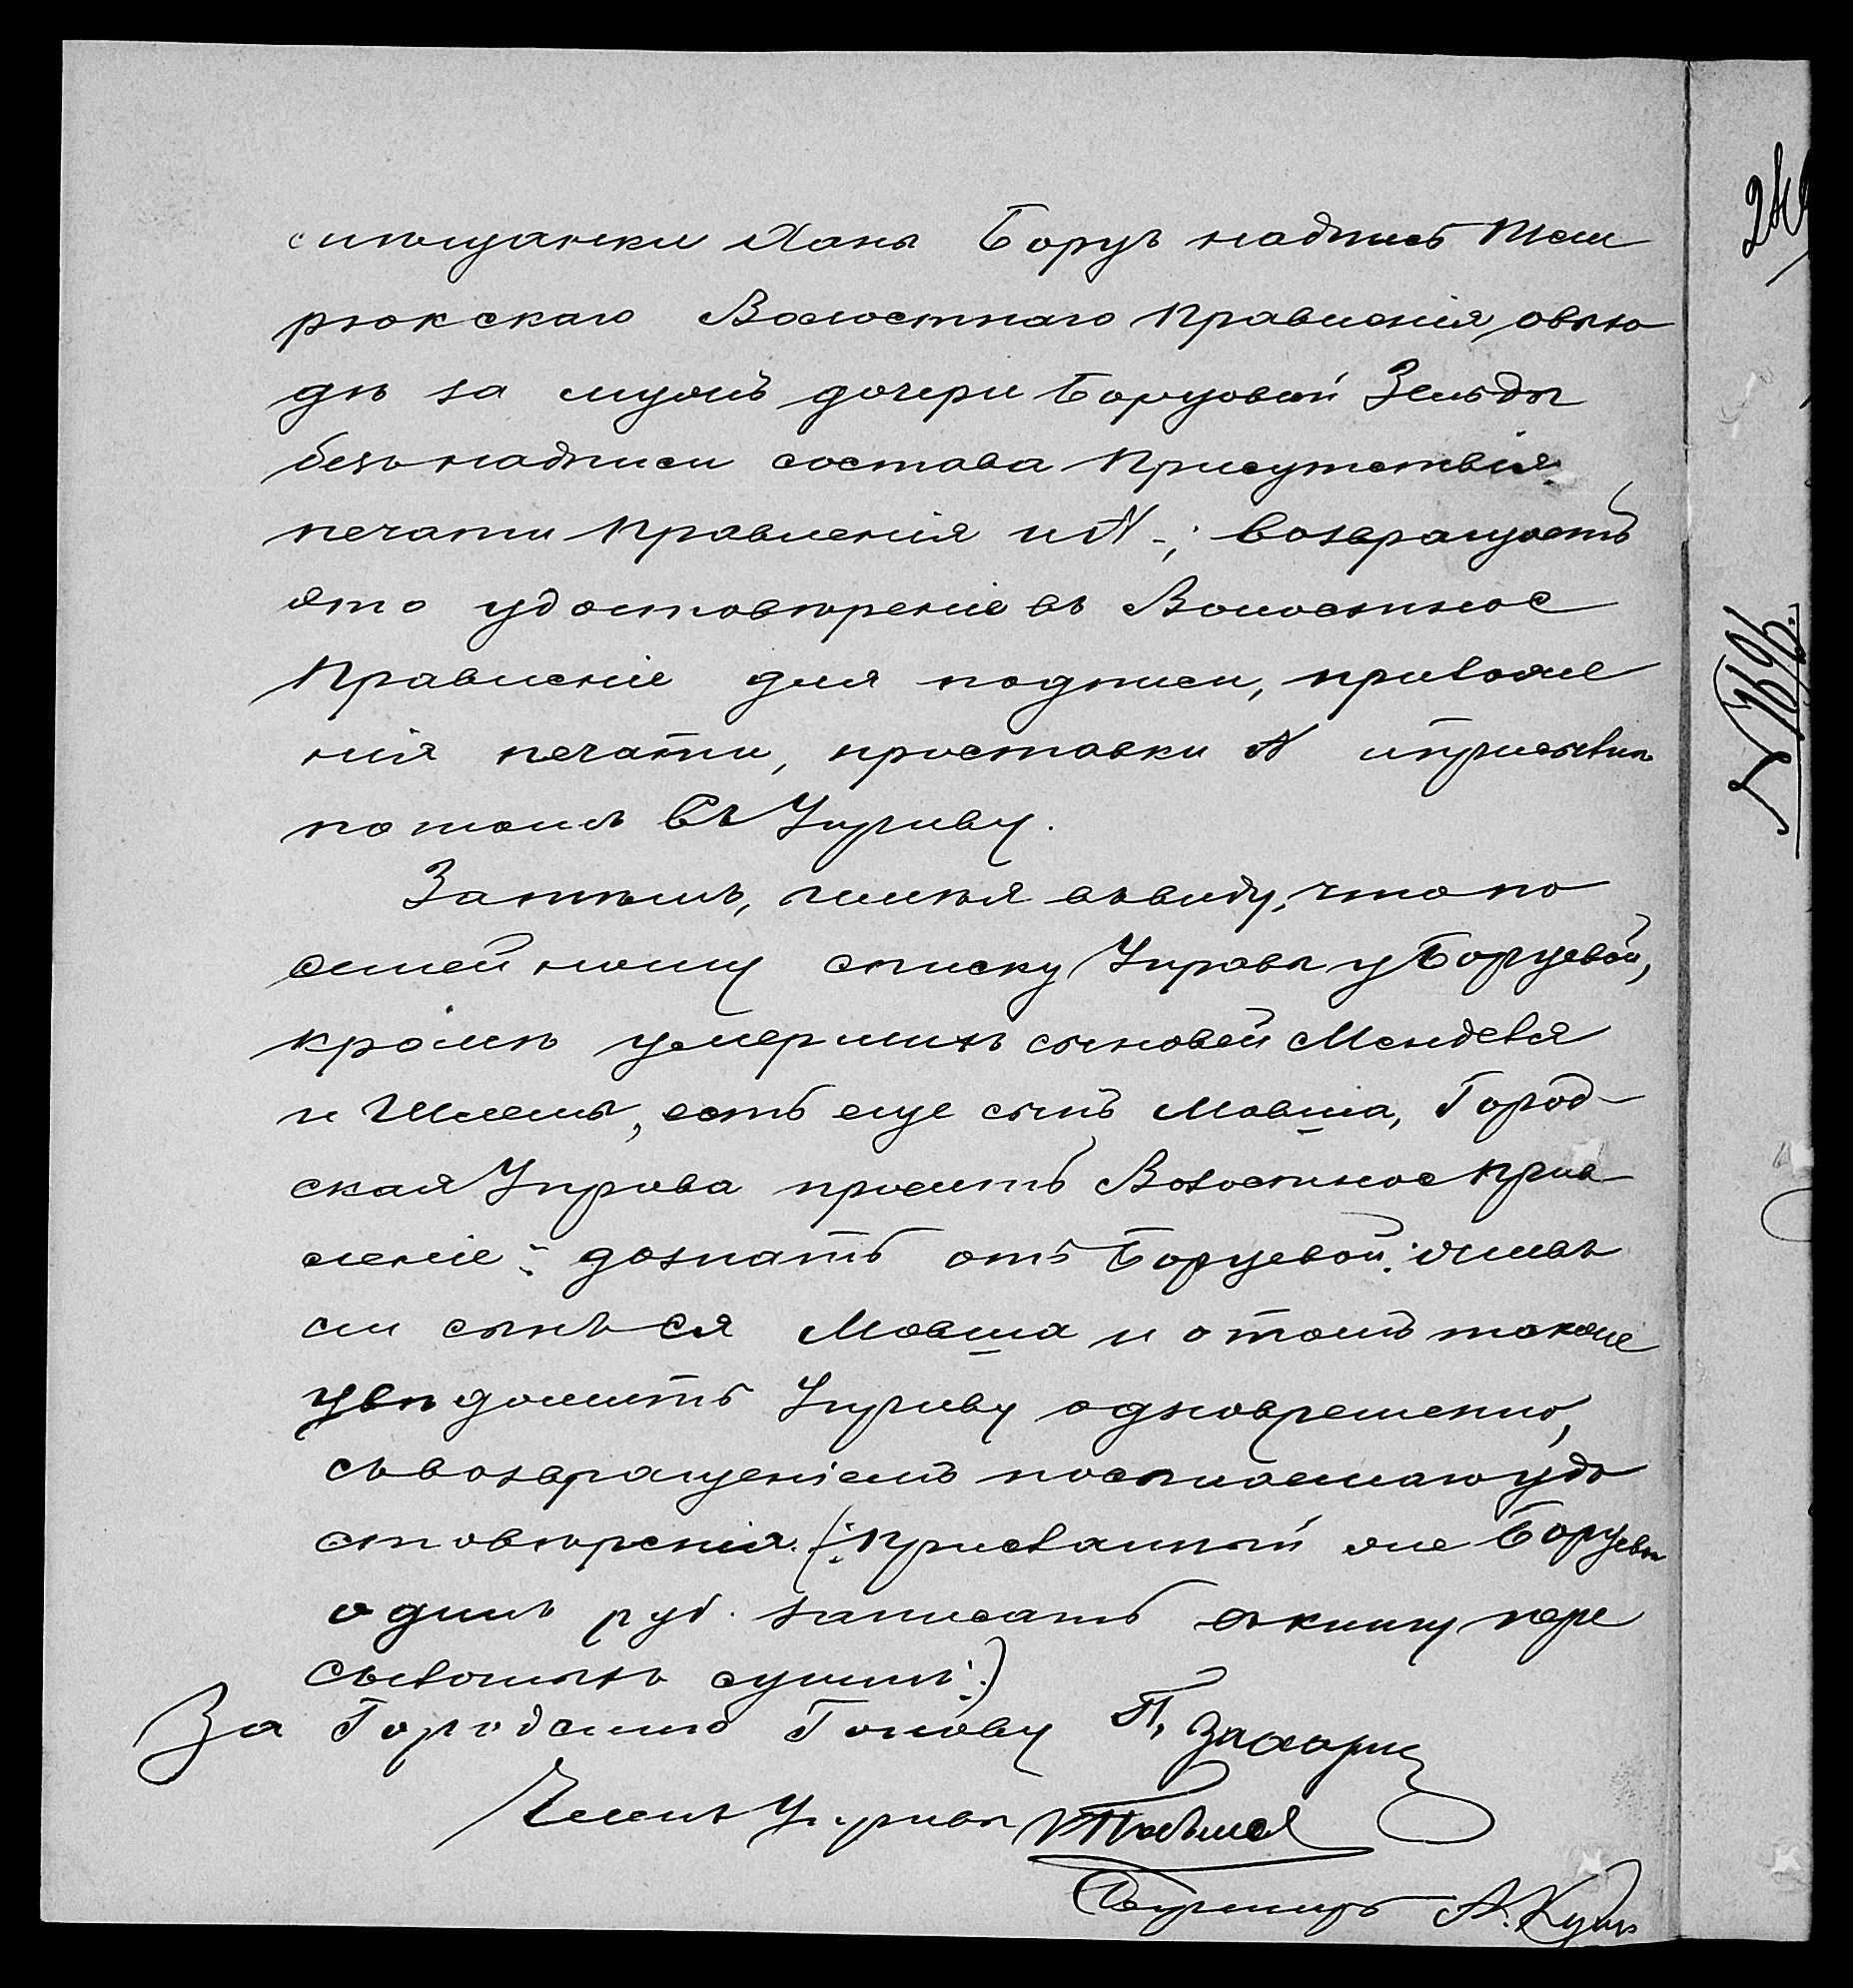 с мѣщанки Ханы Боруъ надпись Тем
рюкскаго Волостнаго Правленія, овыхо
дѣ за мужъ дочери Борцовой Зельды
безъ надписи состава Присутствія
печати Правленія и №; возвращаетъ
это удостовѣреніе въ Волостное
Правленіе для подписи, приложе
нія печати, проставки № и присылки
потомъ въ Управу.
Затѣмъ, имѣя ввиду, что по
семейному списку Управы у Борцевой,
кромѣ умершихъ сыновей Менделя
и Шлемы, есть еще сынъ Мовша, Город-
ская Управа проситъ Волостное Прав
леніе: дознать отъ Борцевой: живъ
ли сынъ ея Мовша и о томъ также
увѣдомить Управу одновременно,
съ возвращеніемъ посылаемаго удо
стовѣренія. (: Присланный же Борцевой
одинъ руб. записать въ книгу пере
сылаемыхъ суммъ:)
За Городскаго Голову П.
Членъ Управы
Бухгалтеръ А.
№ 1696.